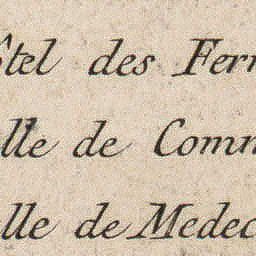 ôtel des Ferm
lle de Comm
lle de Medec